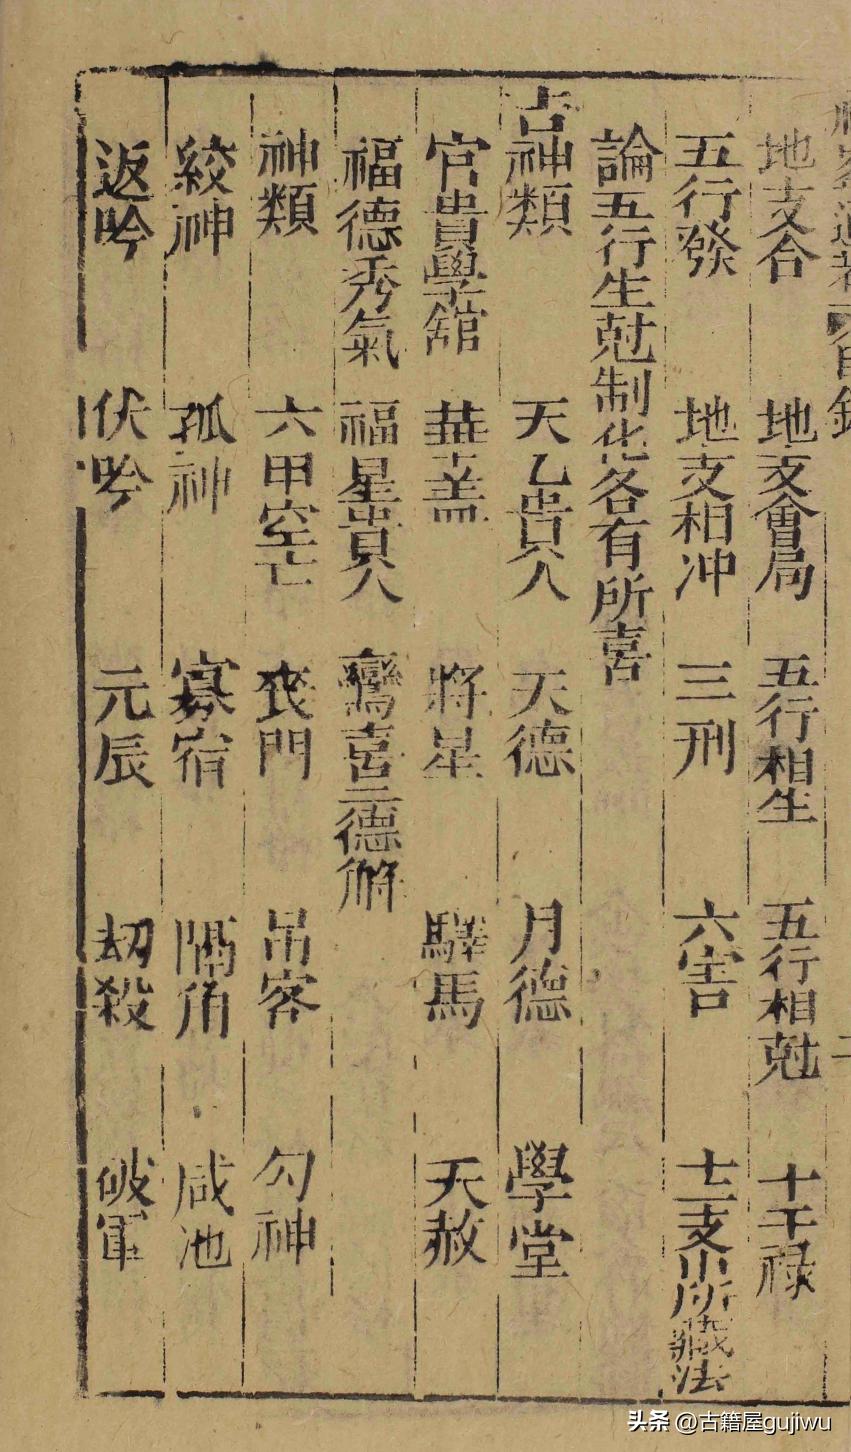 地支合 地支會局 五行相生 五行相尅 十干祿
五行發 地支相冲 三刑 六害 十二支中所藏法
論五行生尅制化各有所喜
吉神類 天乙貴人 天德 月德 學堂
官貴學館 華盖 將星 驛馬 天赦
福德秀氣 福星貴人 鸞喜三德解
神類 六甲空亡 喪門 吊客 勾神
絞神 孤神 寡宿 隔角 咸池
返吟 伏吟 元辰 刼殺 破軍
头条 @古籍屋gujiwu